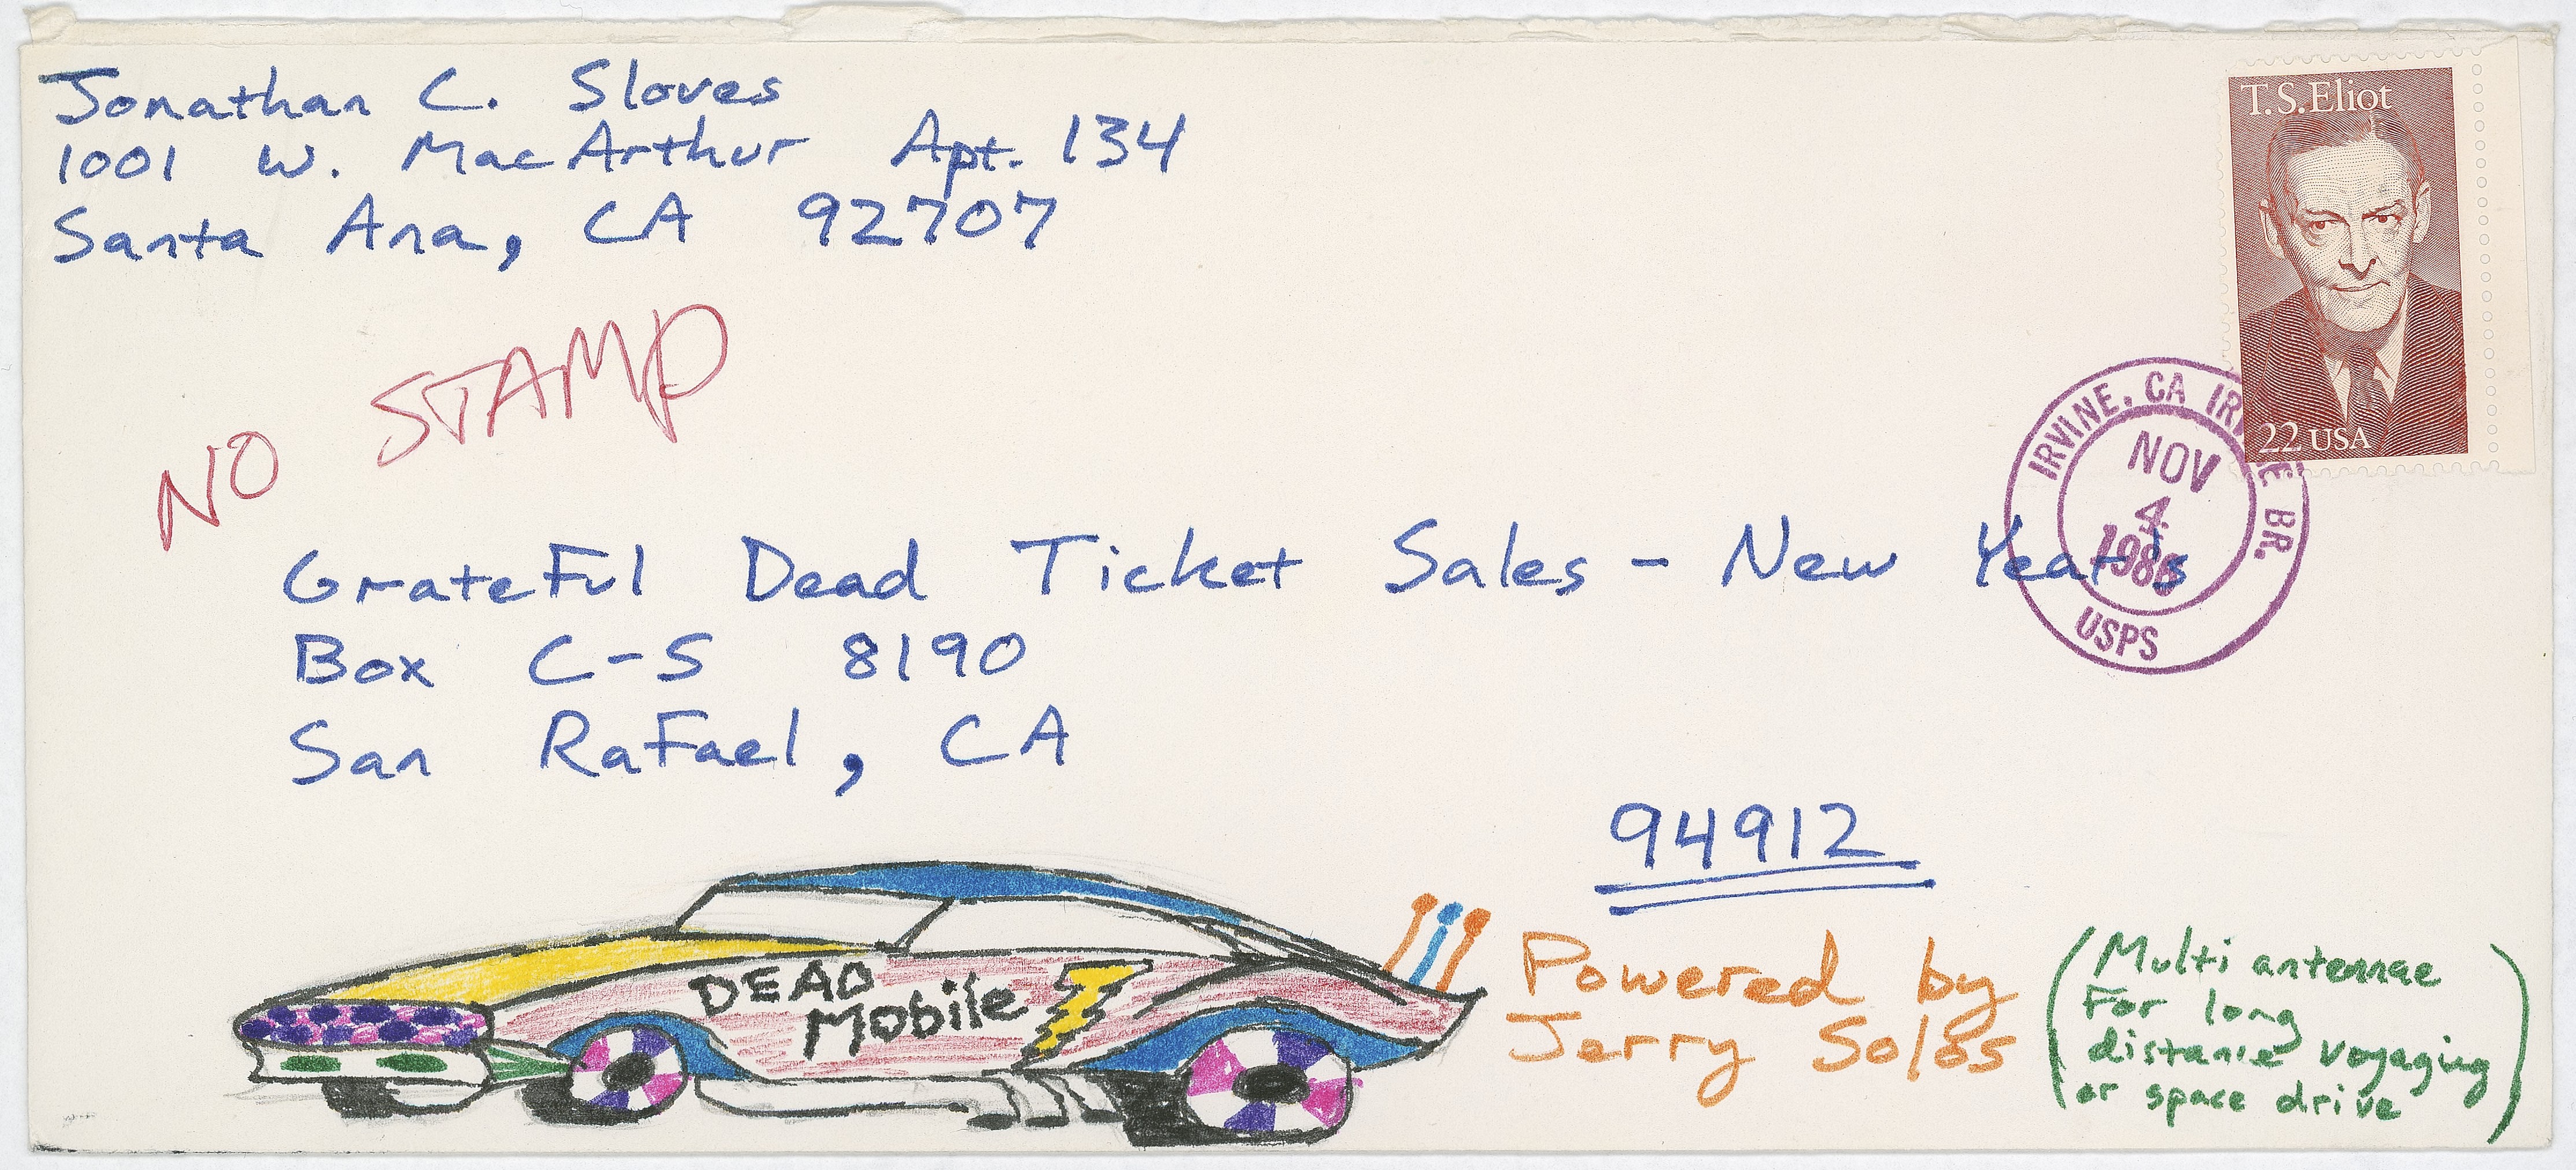 Jonathan C. Sloves
1001 W. MacArthur Apt. 134
Santa Ana, CA 92707
T.S.Eliot
22 USA
IRVINE, CA IRVINE BR.
NOV
4
1986
USPS
NO STAMP
Grateful Dead Ticket Sales - New Year's
Box C-S 8190
San Rafael, CA
94912
DEAD
Mobile
Powered by
Jerry Solos
(Multi antennae
For long
distance voyaging
or space drive)